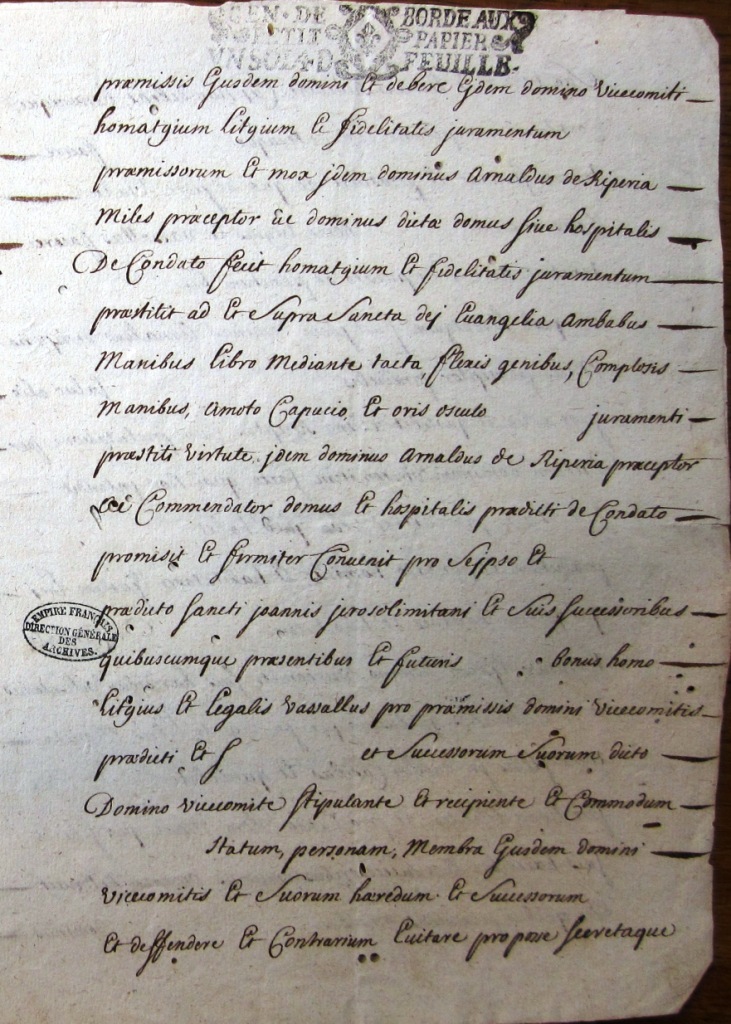 GEN · DE BORDEAUX
PETIT PAPIER
VN SOL 4 D FEUILLE.
præmissis Ejusdem domini Et debere Ejdem domino vicecomiti
homatgium Litgium Et fidelitatis juramentum
præmissorum Et mox jdem dominus Arnaldus de Riperia
Miles præceptor ... dominus dictæ domus sive hospitalis
De Condato fecit homatgium Et fidelitatis juramentum
præstitit ad Et Supra Sancta dej Euangelia Ambabus
Manibus Libro Mediante tacta, flexis genibus, Complosis
Manibus, Amoto Capucio, Et oris osculo juramenti
præstiti virtute jdem dominus Arnaldus de Riperia præceptor
Commendator domus Et hospitalis prædicti de Condato
promisit Et firmiter Convenit pro Seipso Et
prædicto sancti joannis jerosolimitani Et Suis successoribus
quibuscumque præsentibus Et futuris bonus homo
Litgius Et Legalis vassallus pro præmissis domini vicecomitis
prædicti Et S et Successorum Suorum dicto
Domino vicecomite stipulante Et recipiente Et Commodum
statum, personam, Membra Ejusdem domini
vicecomitis Et Suorum hæredum Et Successorum
Et deffendere Et Contrarium Euitare pro posse secretaque
EMPIRE FRANÇAIS
DIRECTION GÉNÉRALE
DES
ARCHIVES.